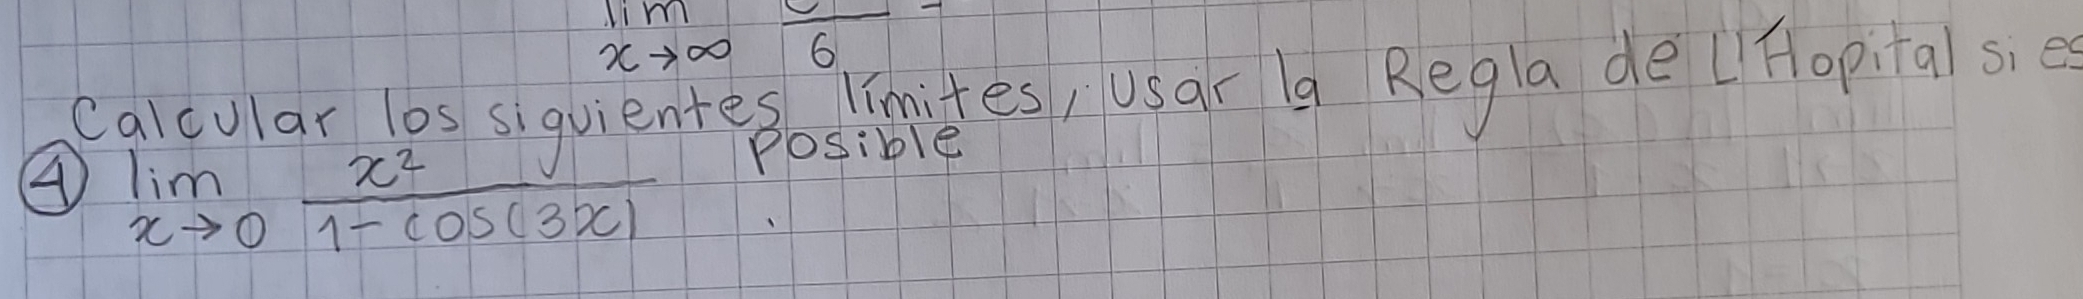 lim
x→∞ 6
Calcular los siguientes límites, usar la Regla de L'Hopital si es
posible
④ lim x²
x→0 1-cos(3x)